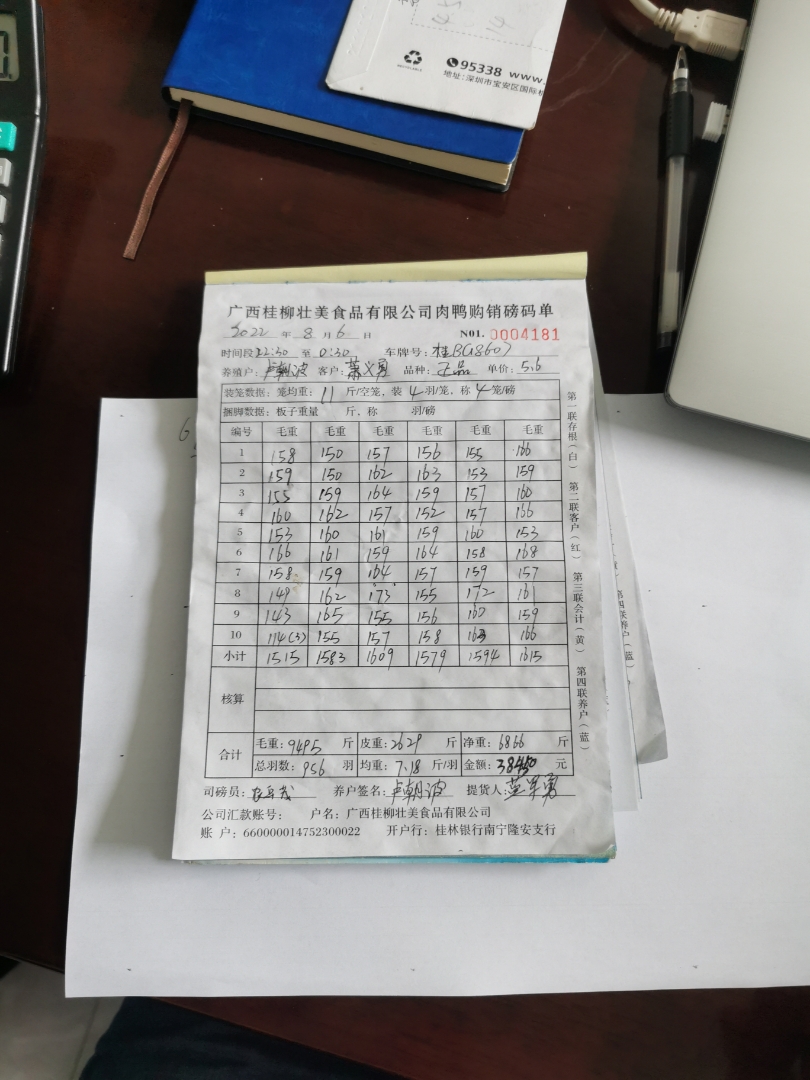 95338 www.
地址:深圳市宝安区国际
广西桂柳壮美食品有限公司肉鸭购销磅码单
2022 年 8 月 6 日 N01. 0004181
时间段 22:30 至 0:30 车牌号: 桂BG8607
养殖户: 卢朝波 客户: 品种: 正品 单价: 5.6
装笼数据: 笼均重: 11 斤/空笼, 装 4 羽/笼, 称 4 笼/磅
捆脚数据: 板子重量 斤, 称 羽/磅
编号 毛重 毛重 毛重 毛重 毛重 毛重
1 158 150 157 156 155 166
2 159 150 162 163 153 159
3 155 159 164 159 157 160
4 160 162 157 152 157 166
5 153 160 161 159 160 153
6 166 161 159 164 158 168
7 158 159 164 157 159 157
8 149 162 173 155 172 161
9 143 165 155 156 160 159
10 114(3) 155 157 158 163 166
小计 1515 1583 1609 1579 1594 1615
核算
合计
毛重: 9495 斤 皮重: 2629 斤 净重: 6866 斤
总羽数: 956 羽 均重: 7.18 斤/羽 金额: 38450 元
司磅员: 养户签名: 卢朝波 提货人:
公司汇款账号: 户名: 广西桂柳壮美食品有限公司
账 户: 660000014752300022 开户行: 桂林银行南宁隆安支行
第一联存根(白) 第二联客户(红) 第三联会计(黄) 第四联养户(蓝)
第四联养户(蓝)